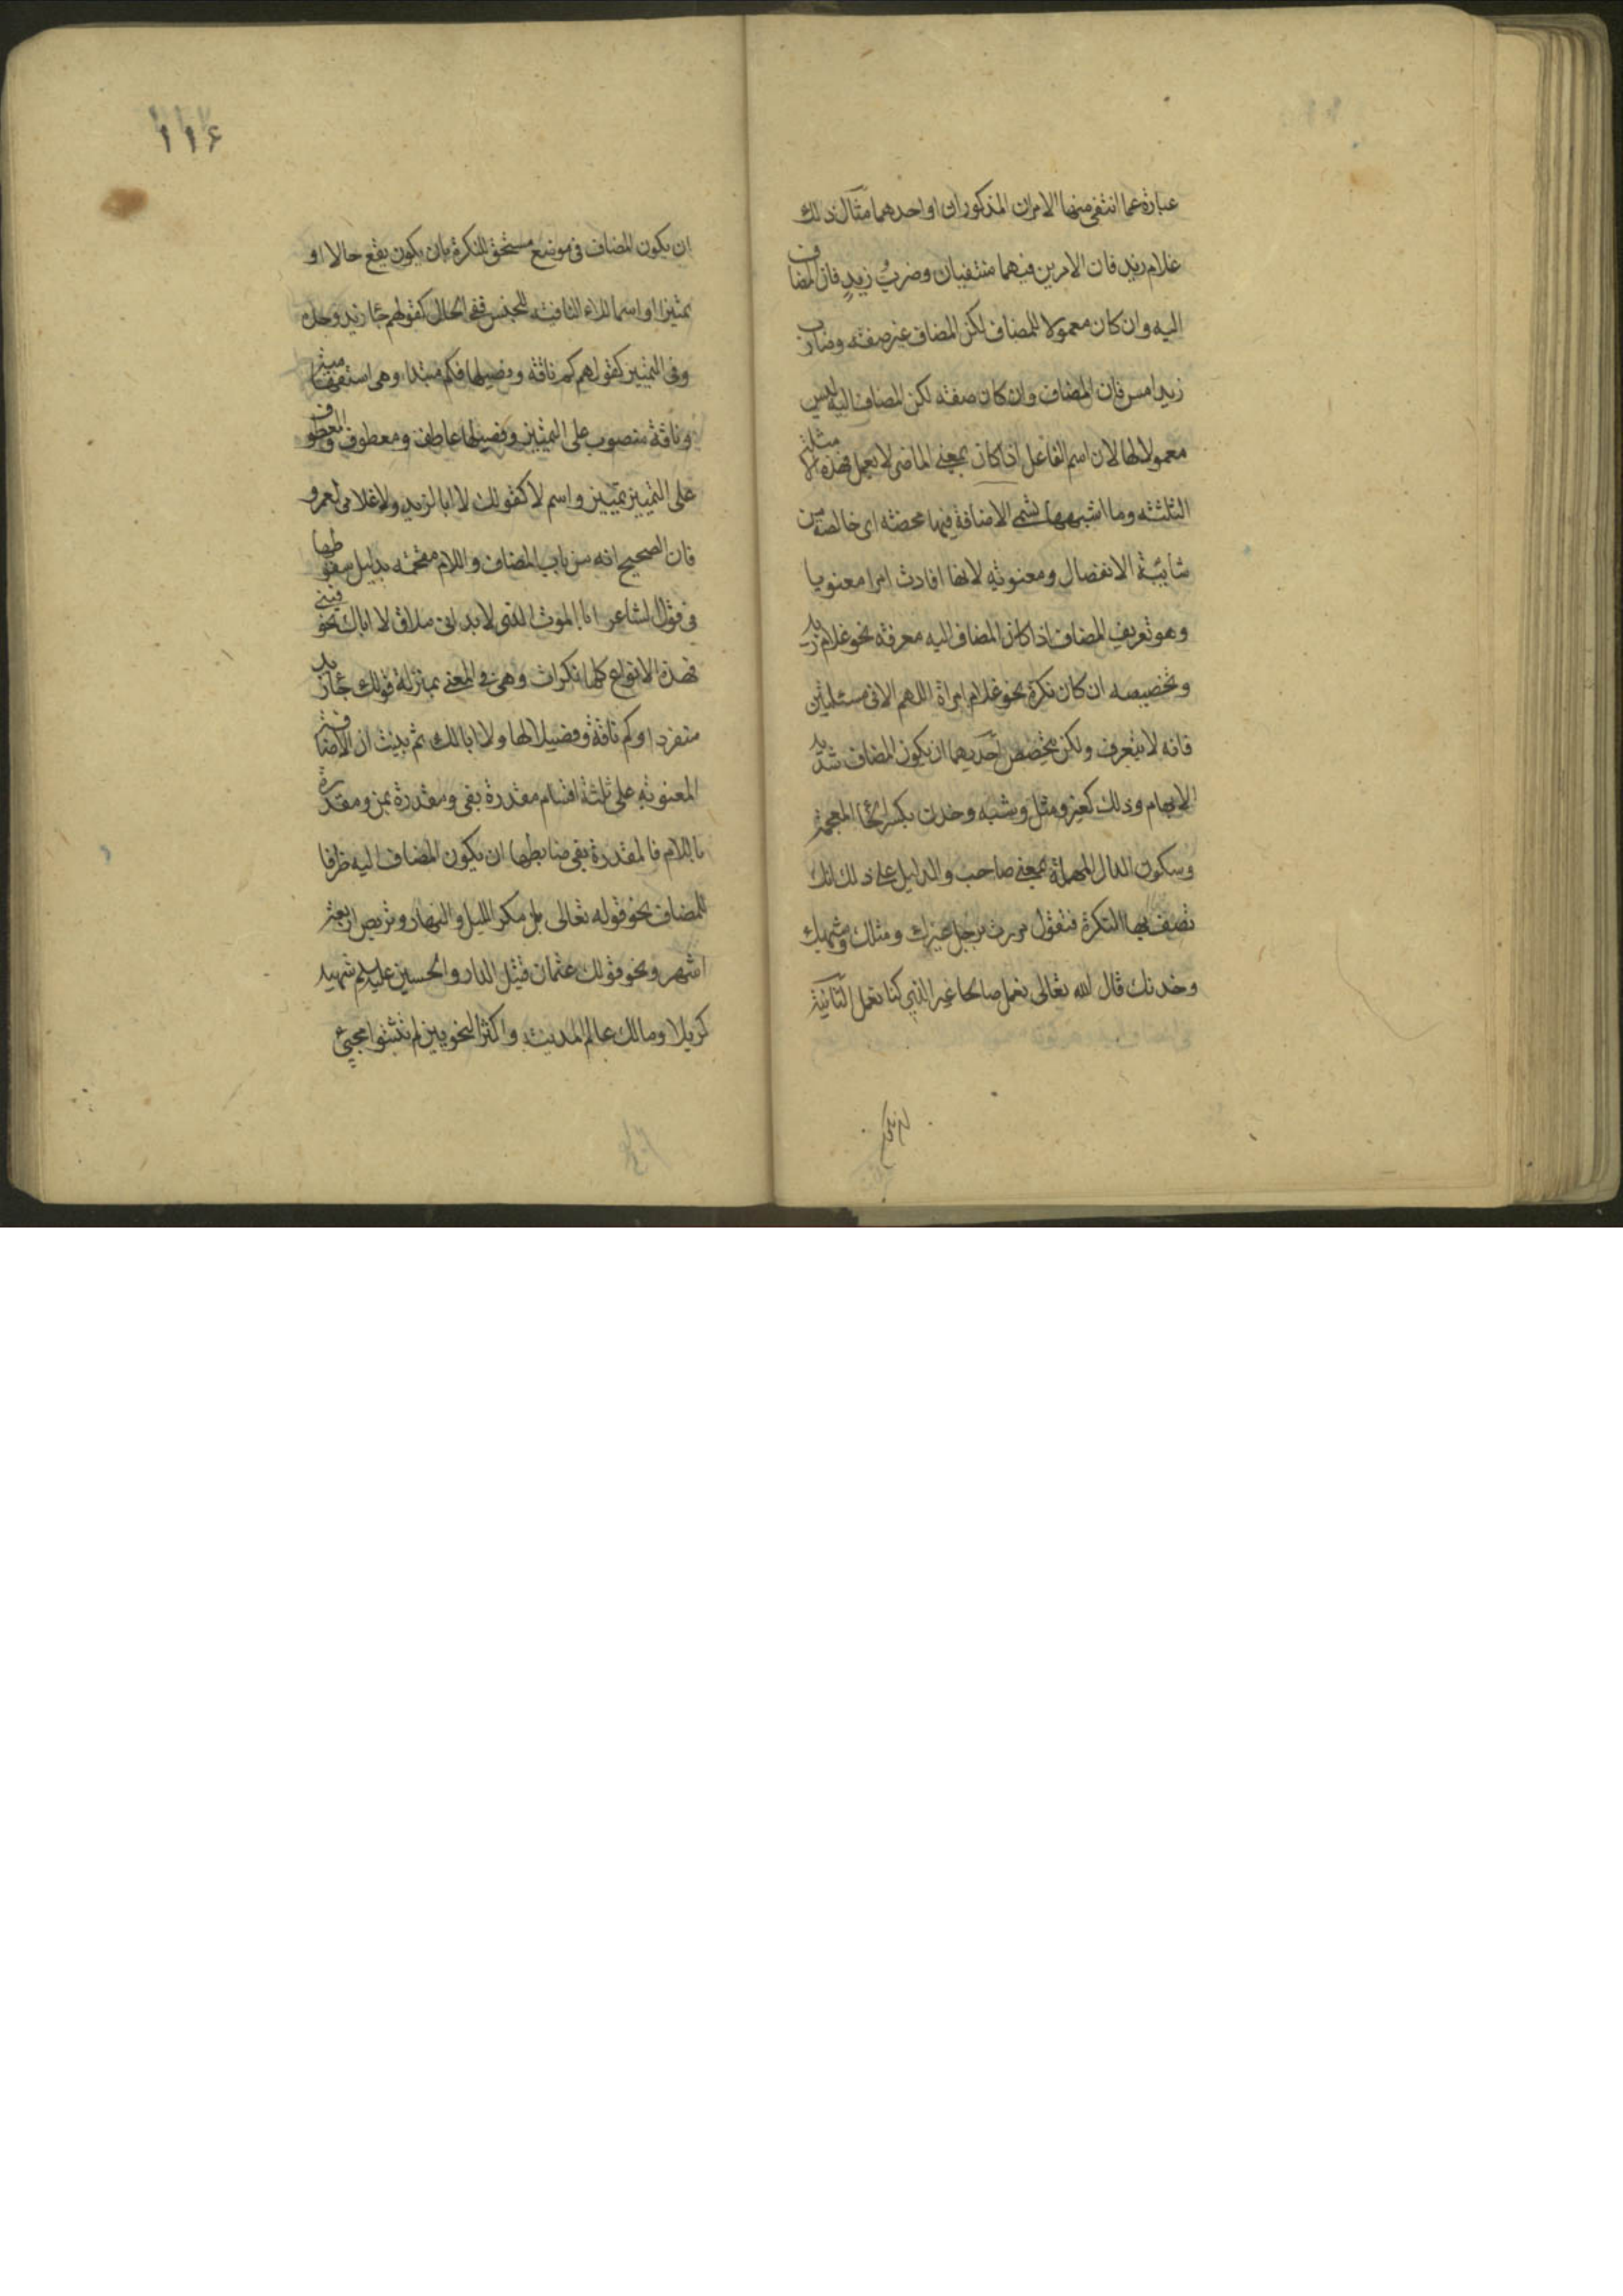 عبارة عما انتفى منها الامران المذكوران او احدهما مثال ذلك
غلام زيد فان الامرين فيهما منتفيان وضرب زيدٍ فان المضاف
اليه وان كان معمولا للمضاف لكن المضاف غير صفته وضارب
زيد امس فان المضاف وان كان صفته لكن المضاف اليه ليس
معمولا لها لان اسم الفاعل اذا كان بمعنى الماضى لا يعمل فهذه الامثلة
الثلثته وما اشبهها تسمى الاضافة فيها محضته اى خالصة من
شائبة الانفصال ومعنوية لانها افادت امرا معنويا
وهو تعريف المضاف اذا كان المضاف اليه معرفة نحو غلام زيد
وتخصيصه ان كان نكرة نحو غلام امراة اللهم الا فى مسئلتين
فانه لا يتعرف ولكن يتخصص احديهما ان يكون المضاف شديد
الابهام وذلك كغير ومثل وشبه وخدن بكسر الخا المعجمة
وسكون الدال المهملة بمعنى صاحب والدليل على ذلك انك
تصف بها النكرة فتقول مررت برجل غيرك ومثلك وشبهك
وخدنك قال الله تعالى نعمل صالحا غير الذي كنا نعمل الثانية
ان يكون المضاف فى موضع مستحق للنكرة بان يكون يقع حالا او
تمييزا او اسما للاء النافيته للجنس ففى الحال كقولهم جا زيد وحده
وفى التمييز كقولهم كم ناقة وفصيلها فكم مبتدا وهى استفهامية
وناقة منصوب على التمييز وفصيلها عاطف ومعطوف والمعطوف
على التمييز تمييز واسم لا كقولك لا ابا لزيد ولا غلامى لعمرو
فان الصحيح انه من باب المضاف واللام مقحمه بدليل سقوطها
فى قول الشاعر ابا الموت الذى لا بد انى ملاق لا اباك تخوفينى
فهذه الانواع كلها نكرات وهى فى المعنى بمنزلة قولك جا زيد
منفردا وكم ناقة وفصيلا لها ولا ابا لك ثم بينت ان الاضافة
المعنوية على ثلثة اقسام مقدرة بفى ومقدرة بمن ومقدرة
باللام فالمقدرة بفى ضابطها ان يكون المضاف اليه ظرفا
للمضاف نحو قوله تعالى بل مكر الليل والنهار وتربص اربعة
اشهر ونحو قولك عثمان قتيل الدار والحسين عليه السلم شهيد
كربلا ومالك عالم المدينة واكثر النحويين لم يثبتوا مجيئ
ان يكون
١١۶